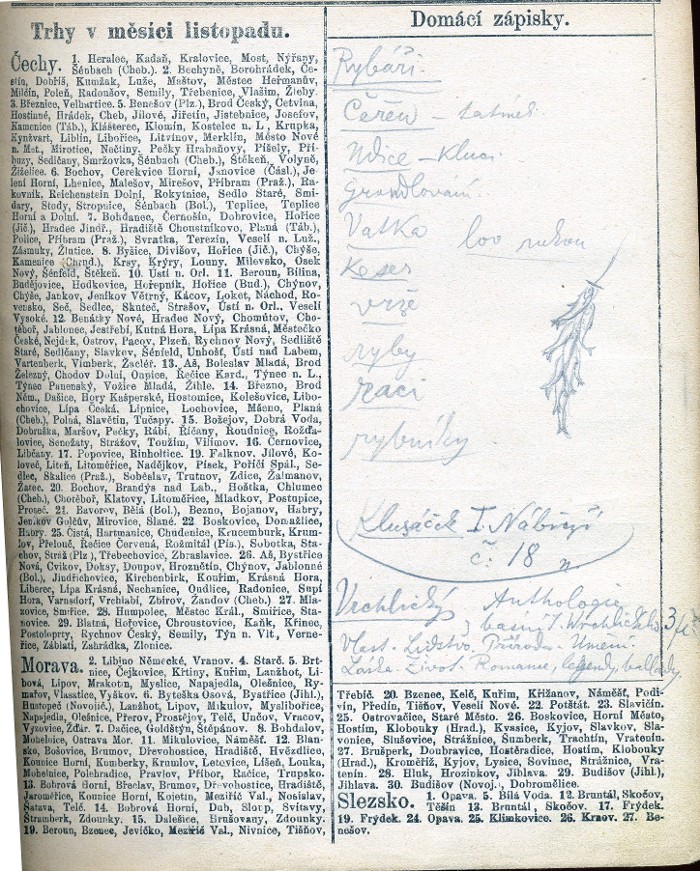 Trhy v měsíci listopadu.
Čechy. 1. Heralec, Kadaň, Kralovice, Most, Nýřany,
Šénbach (Cheb.). 2. Bechyně, Borohrádek, Če-
stín, Dobříš, Kumžak, Luže, Maštov, Městec Heřmanův,
Milčín, Poleň, Radonšov, Semily, Třebenice, Vlašim, Žleby.
3. Březnice, Velhartice. 5. Benešov (Plz.), Brod Český, Cetvina,
Hostinné, Hrádek, Cheb, Jílové, Jiřetín, Jistebnice, Josefov,
Kamenice (Táb.), Klášterec, Klomín, Kostelec n. L., Krupka,
Kynžvart, Liblín, Libořice, Litvínov, Merklín, Město Nové
n. Met., Mirotice, Nečtiny. Pečky Hrabaňovy, Pišely, Pří-
buzy, Sedlčany, Smržovka, Šénbach (Cheb.), Štěkeň, Volyně,
Žiželice. 6. Bochov, Cerekvice Horní, Janovice (Čásl.), Je-
lení Horní, Lhenice, Malešov, Mirešov, Příbram (Praž.), Ra-
kovník, Reichenstein Dolní, Rokytnice, Sedlo Staré, Smi-
dary, Stody, Stropnice, Šénbach (Bol.), Teplice, Teplice
Horní a Dolní. 7. Bohdanec, Černošín, Dobrovice, Hořice
(Jič.), Hradec Jindř., Hradiště Choustníkovo, Planá (Táb.),
Police, Příbram (Praž.), Svratka, Terezín, Veselí n. Luž.,
Zásmuky, Žlutice. 8. Byšice, Divišov, Hořice (Jič.), Chýše,
Kamenice (Chrud.), Krsy, Krýry, Louny, Milevsko, Osek
Nový, Šénfeld, Štěkeň. 10. Ústí n. Orl. 11. Beroun, Bílina,
Budějovice, Hodkovice, Hořepník, Hořice (Bud.), Chýnov,
Chýše, Jankov, Jeníkov Větrný, Kácov, Loket, Náchod, Ro-
vensko, Seč, Sedlec, Skuteč, Strašov, Ústí n. Orl., Veselí
Vysoké. 12. Benátky Nové, Hradec Nový, Chomútov, Cho-
těboř, Jablonec, Jestřebí, Kutná Hora, Lípa Krásná, Městečko
České, Nejdek, Ostrov, Pacov, Plzeň, Rychnov Nový, Sedliště
Staré, Sedlčany, Slavkov, Šénfeld, Unhošť, Ústí nad Labem,
Vartenberk, Vimberk, Zacléř. 13. Aš, Boleslav Mladá, Brod
Železný, Chodov Dolní, Oupice, Řečice Kard., Týnec n. L.,
Týnec Panenský, Vožice Mladá, Žihle. 14. Březno, Brod
Něm., Dašice, Hory Kašperské, Hostomice, Kolešovice, Libo-
chovice, Lípa Česká, Lipnice, Lochovice, Mšeno, Planá
(Cheb.), Polná, Slavětín, Tučapy. 15. Božejov, Dobrá Voda,
Dobruška, Maršov, Pačky, Rábí, Říčany, Roudnice, Rožďa-
lovice, Senožaty, Strážov, Toužim, Vilímov. 16. Černovice,
Libčany. 17. Popovice, Rinholtice. 19. Falknov, Jílové, Ko-
loveč, Liteň, Litoměřice, Nadějkov, Písek, Poříčí Spál., Se-
dlec, Skalice (Praž.), Soběslav, Trutnov, Zdice, Žalmanov,
Žatec. 20. Bochov, Brandýs nad Lab., Hoštka, Chlumec
(Cheb.), Chotěboř, Klatovy, Litoměřice, Mladkov, Postupice,
Proseč. 21. Bavorov, Bělá (Bol.), Bezno, Bojanov, Habry,
Jeníkov Golčův, Mirovice, Slané. 22. Boskovice, Domažlice,
Habry. 25. Čistá, Hartmanice, Chudenice, Krucemburk, Krum-
lov, Přelouč, Řečice Červená, Rožmitál (Pís.), Sobotka, Sta-
chov, Stráž (Plz.), Třebechovice, Zbraslavice. 26. Aš, Bystřice
Nová, Cvikov, Doksy, Doupov, Hroznětín, Chýnov, Jablonné
(Bol.), Jindřichovice, Kirchenbirk, Kouřim, Krásná Hora,
Liberec, Lípa Krásná, Nechanice, Oudlice, Radonice, Supí
Hora, Varnsdorf, Vrchlabí, Zbiroh, Žandov (Cheb.). 27. Mla-
zovice, Smiřice. 28. Humpolec, Městec Král., Smiřice, Sta-
novice. 29. Blatná, Hořovice, Chroustovice, Kaňk, Křinec,
Postoloprty, Rychnov Český, Semily, Týn n. Vlt., Verne-
řice, Záblatí, Zahrádka, Zlonice.
Morava. 2. Libíno Německé, Vranov. 4. Starč. 5. Brt-
nice, Čejkovice, Křtiny, Kuřim, Lanžhot, Li-
bová, Lipov, Mrakotín, Myslice, Napajedla, Olešnice, Ry-
mařov, Vlasatice, Vyškov. 6. Byteška Osová, Bystřice (Jihl.),
Hustopeč (Novojič.), Lanžhot, Lipov, Mikulov, Myslibořice,
Napajedla, Olešnice, Přerov, Prostějov, Telč, Unčov, Vracov,
Vyzovice, Žďár. 7. Dačice, Goldštýn, Štěpánov. 8. Bohdalov,
Mohelnice, Ostrava Mor. 11. Mikulovice, Náměšť. 12. Blan-
sko, Bošovice, Brumov, Dřevohostice, Hradiště, Hvězdlice,
Kounice Horní, Kumberky, Krumlov, Letovice, Líšeň, Louka,
Mohelnice, Polehradice, Pravlov, Příbor, Račice, Trupsko.
13. Bobrová Horní, Břeclav, Brumov, Dřevohostice, Hradiště,
Jaroměřice, Kounice Horní, Kojetín, Meziříč Val., Nosislav,
Šatava, Telč. 14. Bobrová Horní, Dub, Sloup, Svitavy,
Štramberk, Zdounky. 15. Dalešice, Brušovany, Zdounky.
19. Beroun, Bzenec, Jevíčko, Meziříč Val., Nivnice, Tišňov,
Domácí zápisky.
Rybáři.
Čeřen –
Udice – Kluci
Grundlování
Vatka lov rukou
Keser
vrše
ryby
raci
rybníky
Klusáček I. Nábřeží
č. 18 n.
Vrchlický Anthologie
básní J. Vrchlického 3
Vlast. Lidstvo. Příroda. Umění.
Láska. Život. Romance, legendy, ballady.
Třebíč. 20. Bzenec, Kelč, Kuřim, Křižanov, Náměšť, Podi-
vín, Předín, Tišňov, Veselí Nové. 22. Potštát. 23. Slavičín.
25. Ostrovačice, Staré Město. 26. Boskovice, Horní Město,
Hostím, Klobouky (Hrad.), Kvasice, Kyjov, Slavkov, Sla-
vonice, Slušovice, Strážnice, Šumberk, Trachtín, Vratenín.
27. Brušperk, Doubravice, Hostěradice, Hostím, Klobouky
(Hrad.), Kroměříž, Kyjov, Lysice, Sovinec, Strážnice, Vra-
tenín. 28. Hluk, Hrozinkov, Jihlava. 29. Budišov (Jihl.),
Jihlava. 30. Budišov (Novoj.), Dobromělice.
Slezsko. 1. Opava. 5. Bílá Voda. 12. Bruntál, Skočov,
Těšín. 13. Bruntál, Skočov. 17. Frýdek.
19. Frýdek. 24. Opava. 25. Klimkovice. 26. Krnov. 27. Be-
nešov.